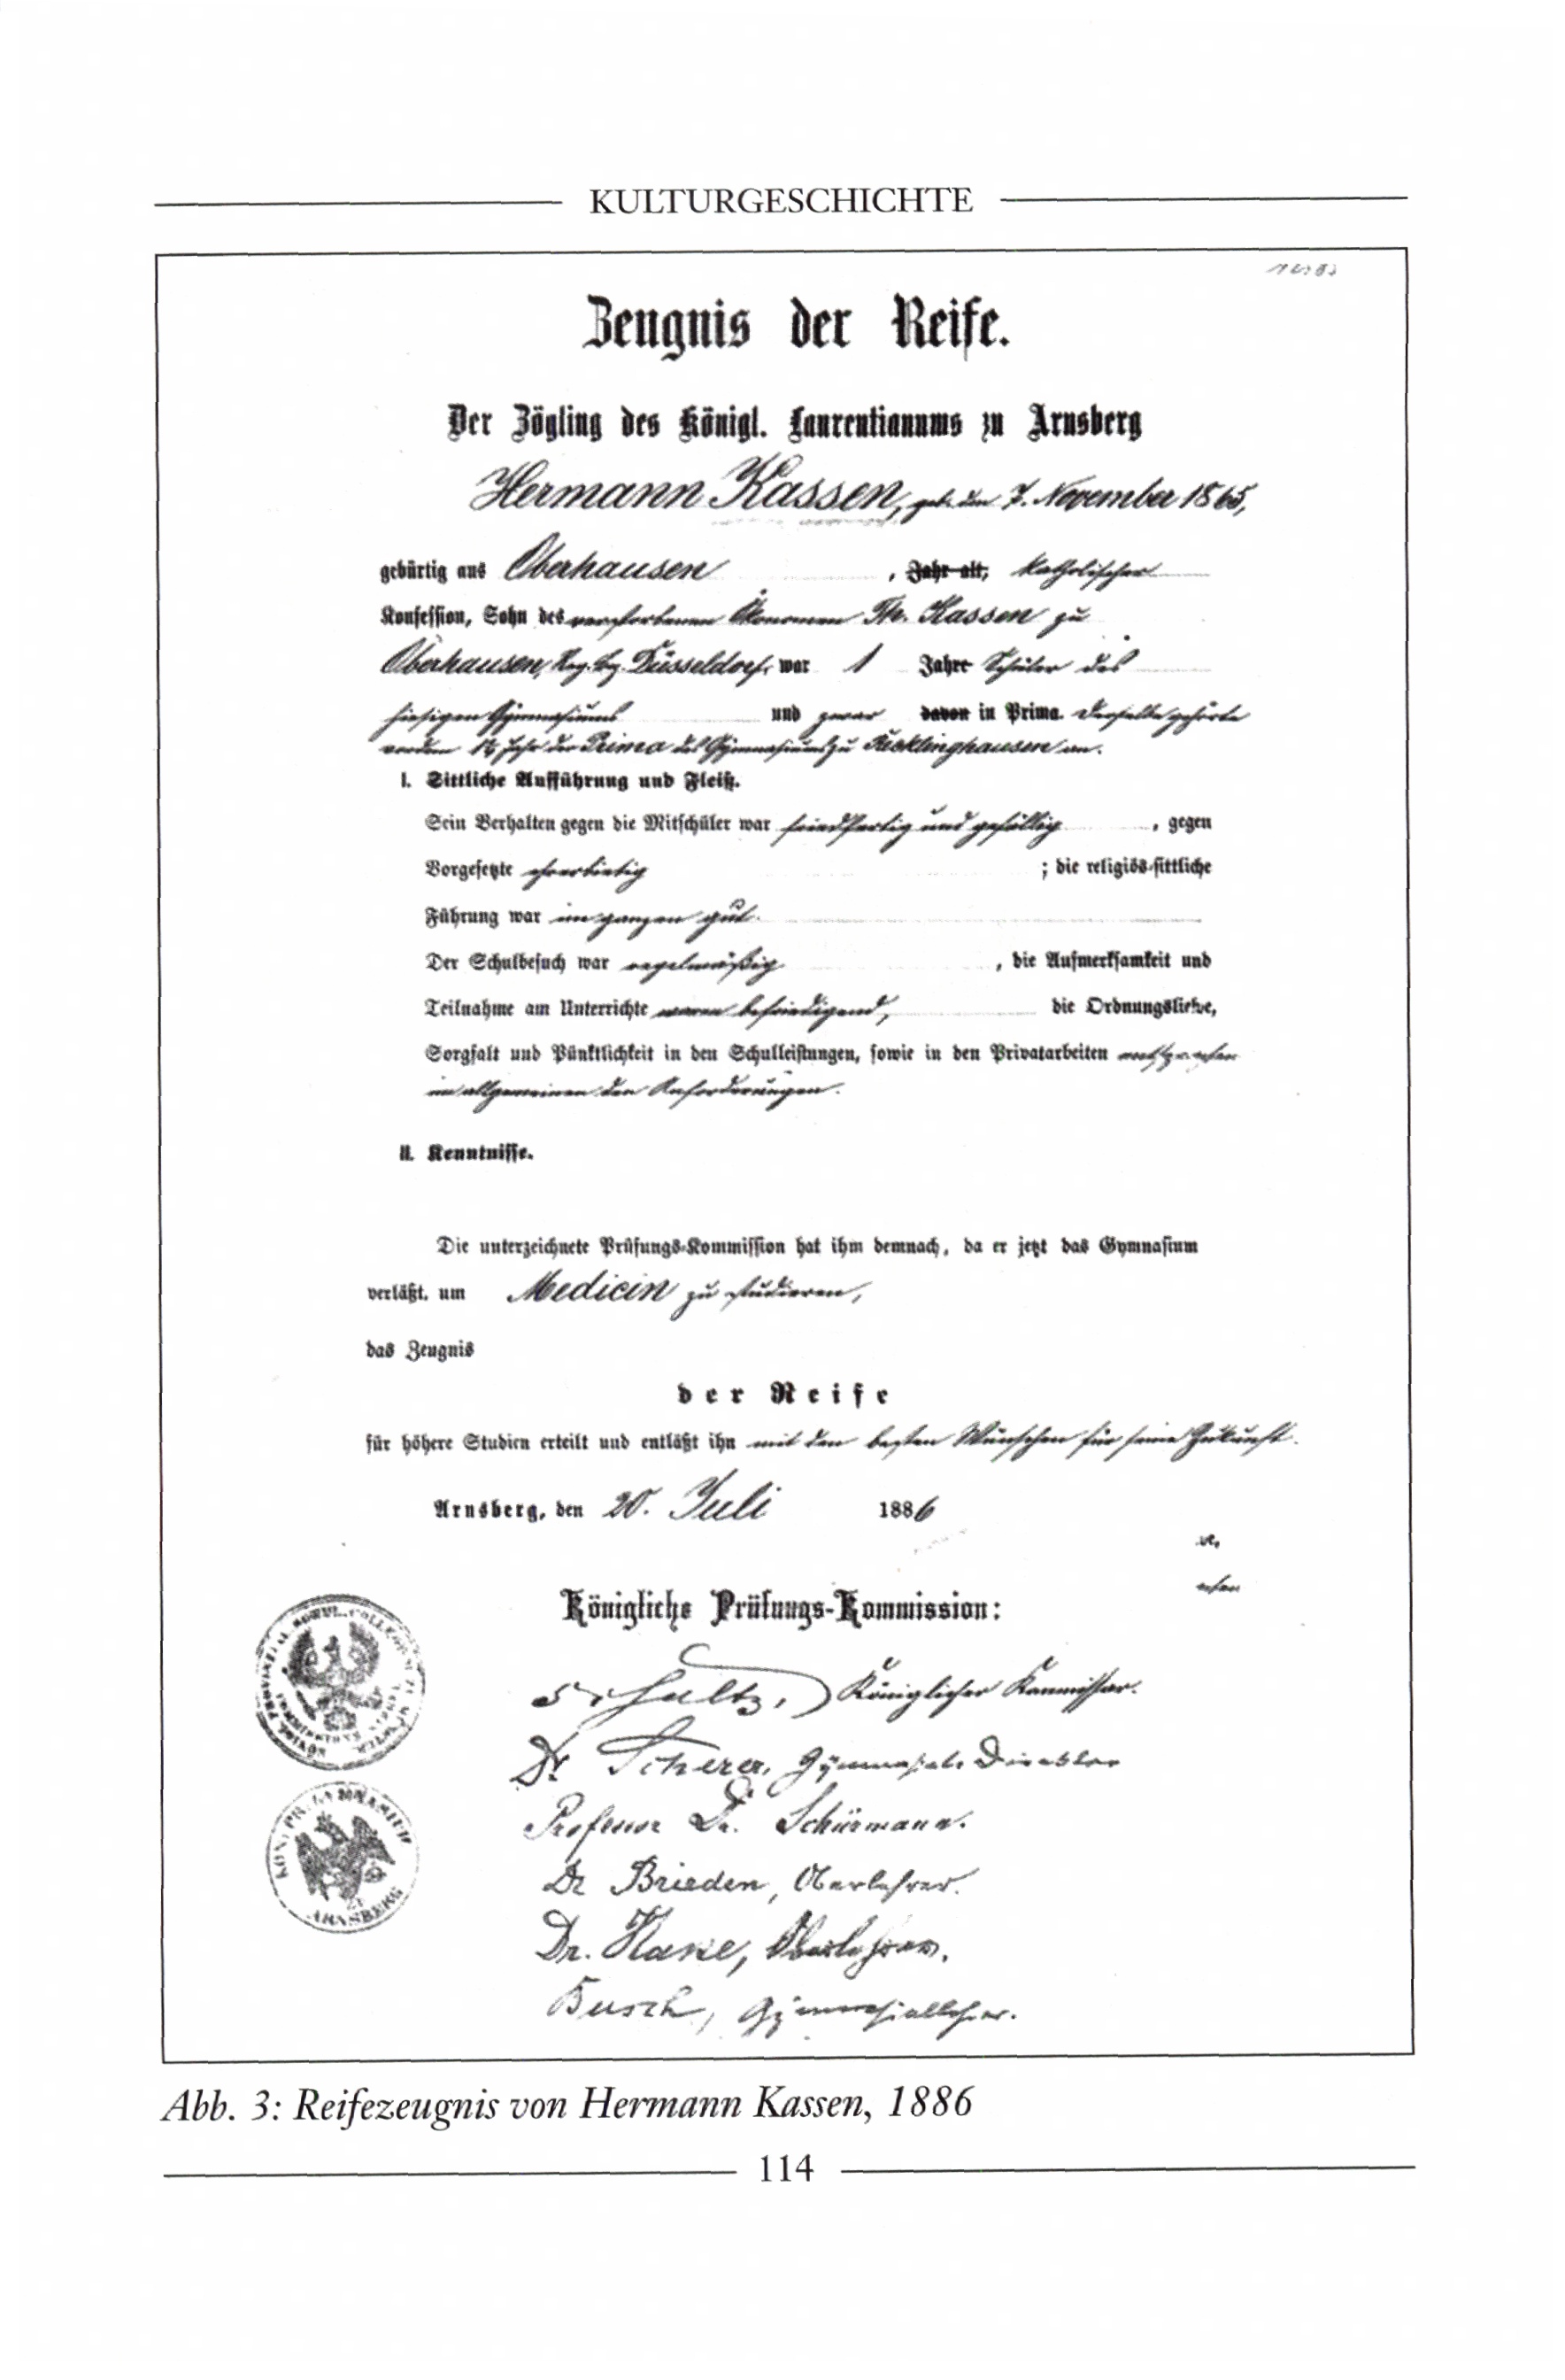 KULTURGESCHICHTE
Zeugnis der Reife.
Der Zögling des Königl. Laurentianums zu Arnsberg
Hermann Kassen, geb. den 7. November 1865,
gebürtig aus Oberhausen , Jahr alt, katholischer
Konfession, Sohn des verstorbenen Ökonomen Th. Kassen zu
Oberhausen, Reg. Bz. Düsseldorf, war 1 Jahr Schüler des
hiesigen Gymnasiums und zwar davon in Prima. Derselbe gehörte
Jahr der Prima des Gymnasiums zu Recklinghausen an.
I. Sittliche Aufführung und Fleiß.
Sein Verhalten gegen die Mitschüler war friedfertig und gefällig , gegen
Vorgesetzte ehrerbietig ; die religiös-sittliche
Führung war im ganzen gut.
Der Schulbesuch war regelmäßig , die Aufmerksamkeit und
Teilnahme am Unterrichte waren befriedigend, die Ordnungsliebe,
Sorgfalt und Pünktlichkeit in den Schulleistungen, sowie in den Privatarbeiten entsprachen
im allgemeinen den Anforderungen.
II. Kenntnisse.
Die unterzeichnete Prüfungs-Kommission hat ihm demnach, da er jetzt das Gymnasium
verläßt, um Medicin zu studieren,
das Zeugnis
der Reife
für höhere Studien erteilt und entläßt ihn mit den besten Wünschen für seine Zukunft.
Arnsberg, den 20. Juli 1886
Königliche Prüfungs-Kommission:
Schultz, Königlicher Kommissar.
Dr Scherer, Gymnasial-Direktor
Professor Dr. Schürmann.
Dr Brieden, Oberlehrer.
Dr. Hake, Oberlehrer.
Busch, Gymnasiallehrer.
ARNSBERG
Abb. 3: Reifezeugnis von Hermann Kassen, 1886
114